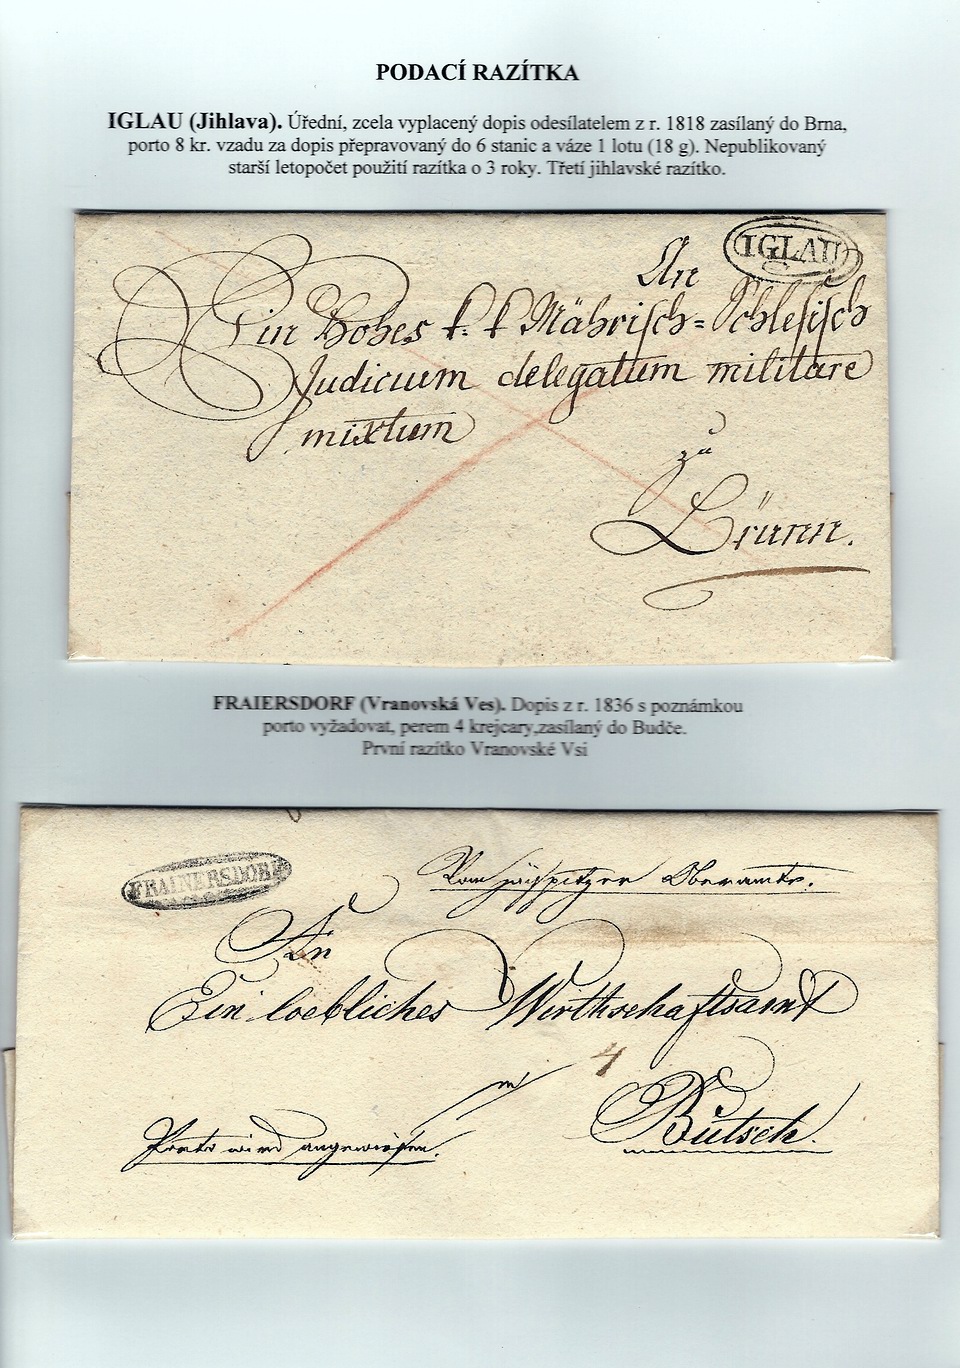 PODACÍ RAZÍTKA
IGLAU (Jihlava). Úřední, zcela vyplacený dopis odesílatelem z r. 1818 zasílaný do Brna,
porto 8 kr. vzadu za dopis přepravovaný do 6 stanic a váze 1 lotu (18 g). Nepublikovaný
starší letopočet použití razítka o 3 roky. Třetí jihlavské razítko.
IGLAU
An
Ein Hohes k. k Mährisch=Schlesisch
Judicium delegatum militare
mixtum
zu
Brünn.
FRAIERSDORF (Vranovská Ves). Dopis z r. 1836 s poznámkou
porto vyžadovat, perem 4 krejcary,zasílaný do Budče.
První razítko Vranovské Vsi
FRAINERSDORF
Vom jaispitzer Oberamte.
An
Ein loebliches Wirthschaftsamt
4
Butsch.
Porto wird angewiesen.